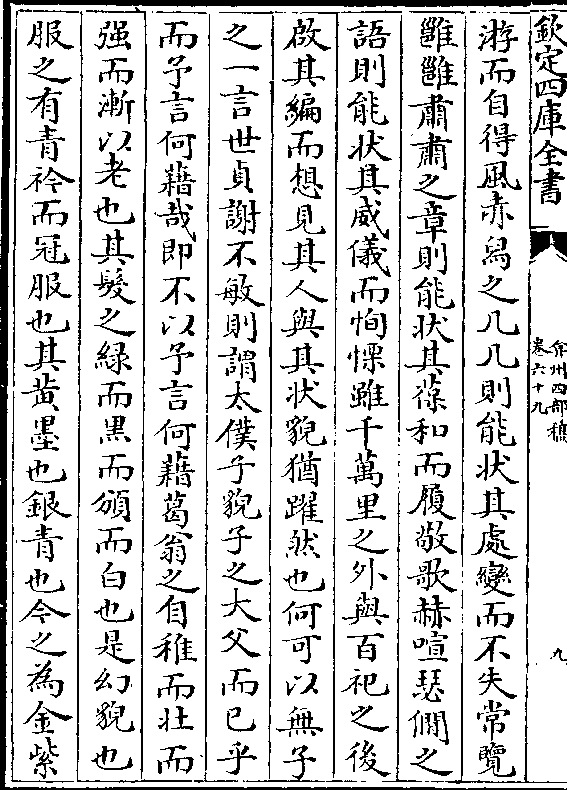 欽定四庫全書
弇州四部稿
卷六十九
九
游而自得風赤舄之几几則能状其處變而不失常覽
雝雝肅肅之章則能状其葆和而履敬歌赫喧瑟僩之
語則能状其威儀而恂慄雖千萬里之外與百祀之後
啟其編而想見其人與其状貌猶躍然也何可以無子
之一言世貞謝不敏則謂太僕子貌子之大父而已乎
而予言何藉哉即不以予言何藉葛翁之自稚而壮而
强而漸以老也其髮之緑而黒而頒而白也是幻貌也
服之有青衿而冠服也其黄墨也銀青也今之為金紫